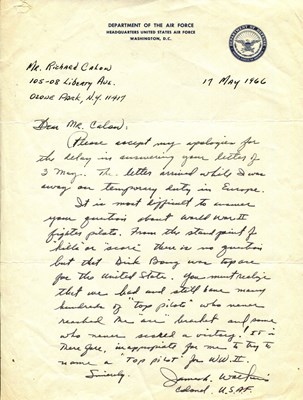 DEPARTMENT OF THE AIR FORCE
HEADQUARTERS UNITED STATES AIR FORCE
WASHINGTON, D.C.
Mr. Richard Calow
105-08 Library Ave.
Ozone Park, N.Y. 11417
17 May 1966
Dear Mr. Calow:
Please accept my apologies for
the delay in answering your letter of
2 May. The letter arrived while I was
away on temporary duty in Europe.
It is most difficult to answer
your question about World War II
fighter pilots. From the standpoint of
"kills" or "score" there is no question
but that Dick Bong was top ace
for the United States. You must realize
that we had and still have many
hundreds of "top pilots" who never
reached the "ace" bracket and some
who never scored a victory! It is
therefore, inappropriate for me to try to
name a "Top pilot" for WW II.
Sincerely,
James A. Watkins
Colonel, U.S.A.F.